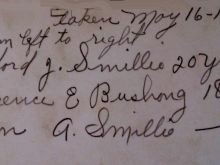 Taken May 16-1
m left to right
ord J. Smillie 20 y
ence E Bushong 18
n A. Smillie —